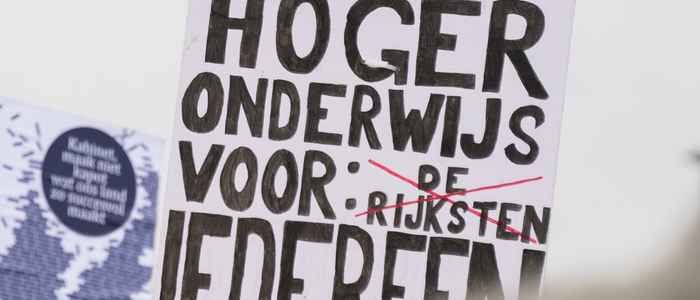 HOGER
ONDERWIJS
VOOR: DE
RIJKSTEN
IEDEREEN
Kabinet,
maak niet
kapot
wat ons land
zo succesvol
maakt